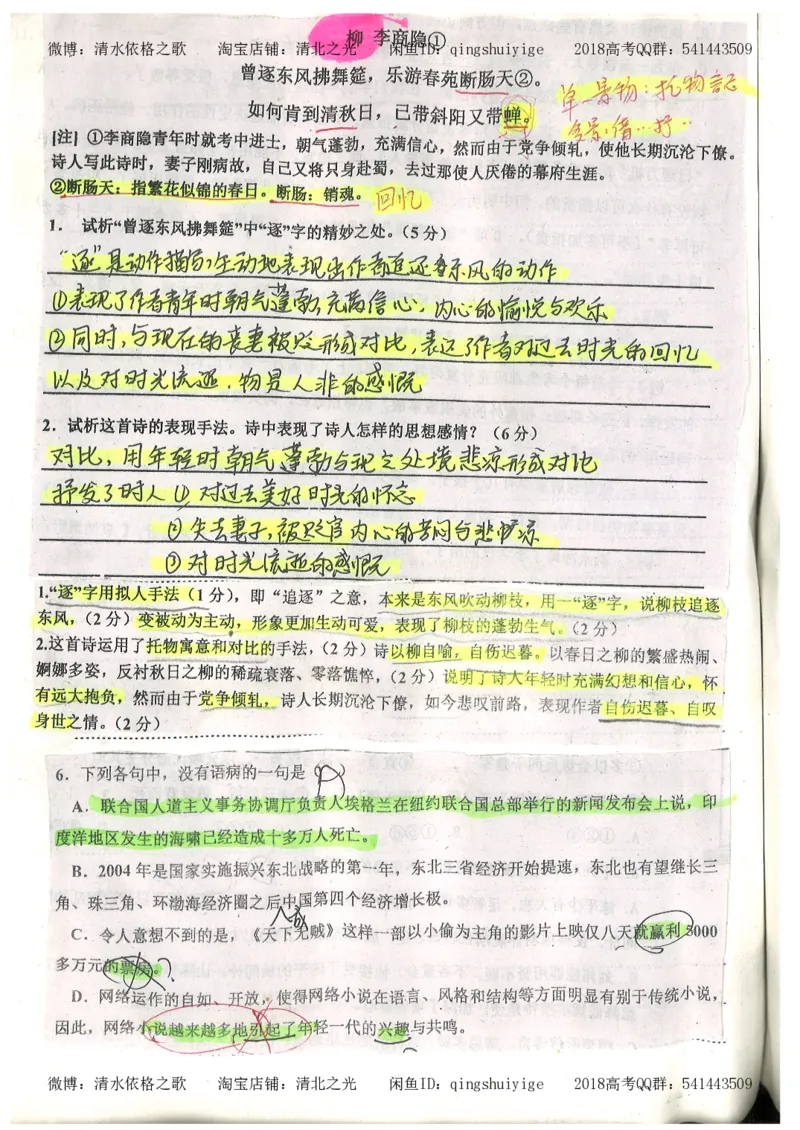 柳 李商隐①
微博：清水依格之歌 淘宝店铺：清北之光 闲鱼ID：qingshuiyige 2018高考QQ群：541443509
曾逐东风拂舞筵，乐游春苑断肠天②。
单一景物：托物言志
如何肯到清秋日，已带斜阳又带蝉。
全景：借…抒…
[注] ①李商隐青年时就考中进士，朝气蓬勃，充满信心，然而由于党争倾轧，使他长期沉沦下僚。
诗人写此诗时，妻子刚病故，自己又将只身赴蜀，去过那使人厌倦的幕府生涯。
②断肠天：指繁花似锦的春日。断肠：销魂。 回忆
1． 试析“曾逐东风拂舞筵”中“逐”字的精妙之处。（5分）
“逐”是动作描写，生动地表现出作者追逐春东风的动作
①表现了作者青年时朝气蓬勃，充满信心，内心的愉悦与欢乐
②同时，与现在的丧妻被贬形成对比，表达了作者对过去时光的回忆
以及对时光流逝，物是人非的感慨
2．试析这首诗的表现手法。诗中表现了诗人怎样的思想感情？（6分）
对比，用年轻时朝气蓬勃与现之处境悲凉形成对比
抒发了时人①对过去美好时光的怀念
②失去妻子，被贬官内心的苦闷与悲凉
③对时光流逝的感慨
1.“逐”字用拟人手法（1分），即“追逐”之意，本来是东风吹动柳枝，用一“逐”字，说柳枝追逐
东风，（2分）变被动为主动，形象更加生动可爱，表现了柳枝的蓬勃生气。（2分）
2.这首诗运用了托物寓意和对比的手法，（2分）诗以柳自喻，自伤迟暮。以春日之柳的繁盛热闹、
婀娜多姿，反衬秋日之柳的稀疏衰落、零落憔悴，（2分）说明了诗人年轻时充满幻想和信心，怀
有远大抱负，然而由于党争倾轧，诗人长期沉沦下僚，如今悲叹前路，表现作者自伤迟暮、自叹
身世之情。（2分）
6．下列各句中，没有语病的一句是
A．联合国人道主义事务协调厅负责人埃格兰在纽约联合国总部举行的新闻发布会上说，印
度洋地区发生的海啸已经造成十多万人死亡。
B．2004年是国家实施振兴东北战略的第一年，东北三省经济开始提速，东北也有望继长三
角、珠三角、环渤海经济圈之后中国第四个经济增长极。
成
C．令人意想不到的是，《天下无贼》这样一部以小偷为主角的影片上映仅八天就赢利5000
多万元的票房。？
D．网络运作的自如、开放，使得网络小说在语言、风格和结构等方面明显有别于传统小说，
因此，网络小说越来越多地引起了年轻一代的兴趣与共鸣。
微博：清水依格之歌 淘宝店铺：清北之光 闲鱼ID：qingshuiyige 2018高考QQ群：541443509